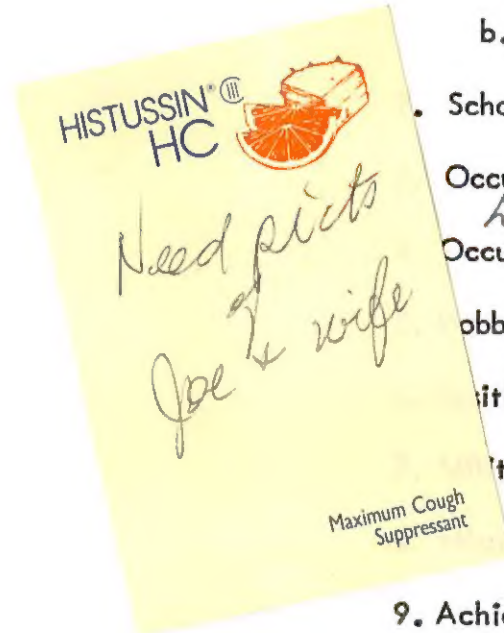 HISTUSSIN® CIII
HC
Need picts
of
Joe & wife
Maximum Cough
Suppressant
b.
Scho
Occu
Occu
obb
sit
9. Achie